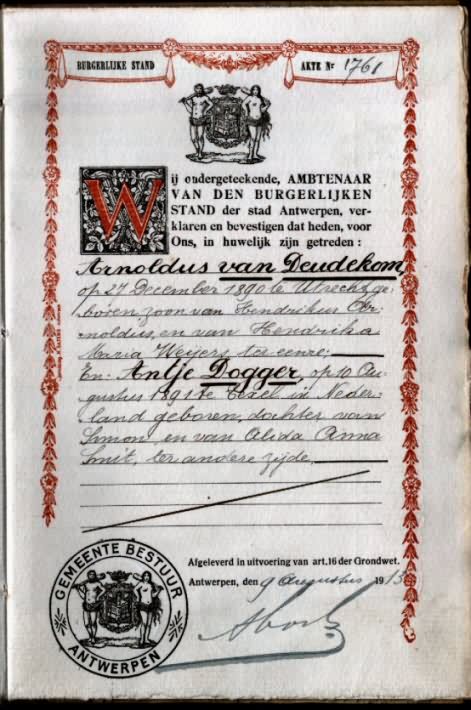 BURGERLIJKE STAND
AKTE Nr 1761
Wij ondergeteekende, AMBTENAAR
VAN DEN BURGERLIJKEN
STAND der stad Antwerpen, ver-
klaren en bevestigen dat heden, voor
Ons, in huwelijk zijn getreden:
Arnoldus van Deudekom,
op 27 December 1890 te Utrecht ge-
boren zoon van Hendrikus Ar-
noldus, en van Hendrika
Maria Weijers, ter eenre;
En Antje Dogger, op 10 Au-
gustus 1891 te Texel in Neder-
land geboren, dochter van
Simon en van Alida Anna
Smit, ter andere zijde,
Afgeleverd in uitvoering van art. 16 der Grondwet.
Antwerpen, den 9 Augustus 1913
GEMEENTE BESTUUR
ANTWERPEN